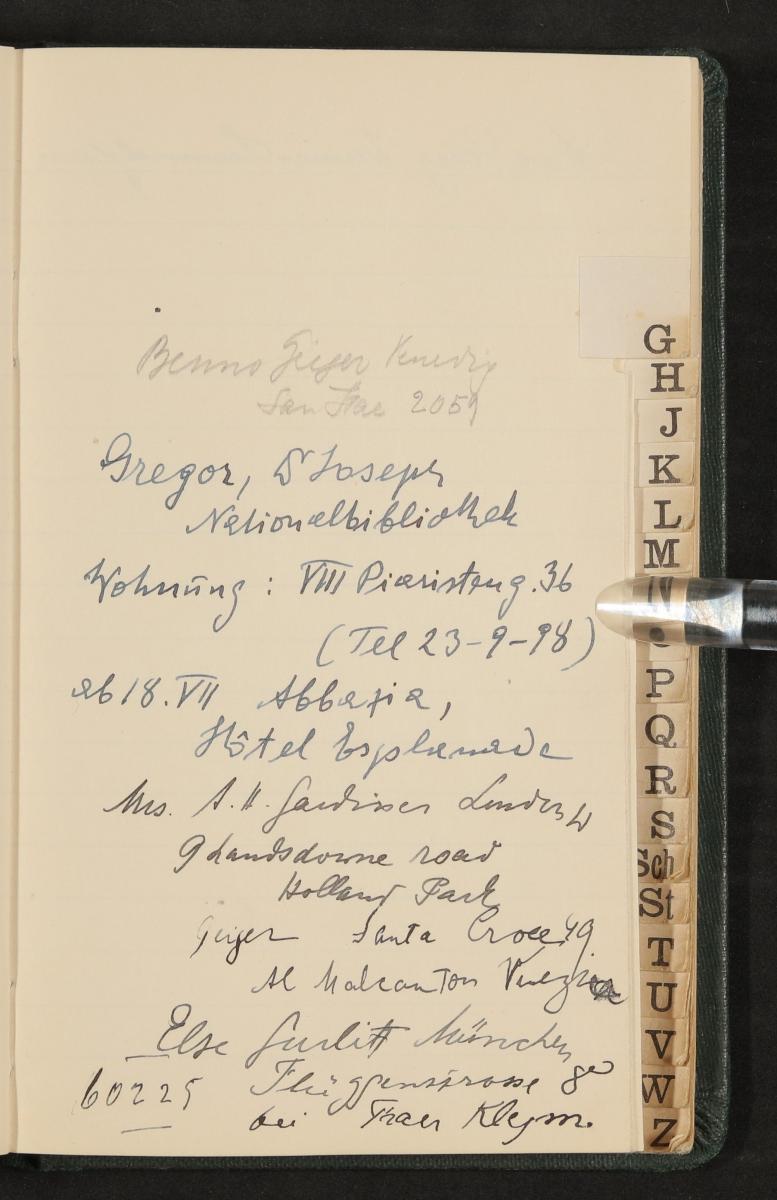 Benno Geiger Venedig
San Stae 2059
Gregor, Dr Joseph
Nationalbibliothek
Wohnung : VIII Piaristeng. 36
(Tel 23-9-98)
ab 18. VII Abbazia,
Hôtel Esplanade
Mrs. A. H. Gardiner London W
9 Landsdowne road
Holland Park
Geiger Santa Croce 49
Al Malcanton Venezia
Else Gurlitt München
60225 Flüggenstrasse
bei Frau
G
H
J
K
L
M
N
O
P
Q
R
S
Sch
St
T
U
V
W
Z